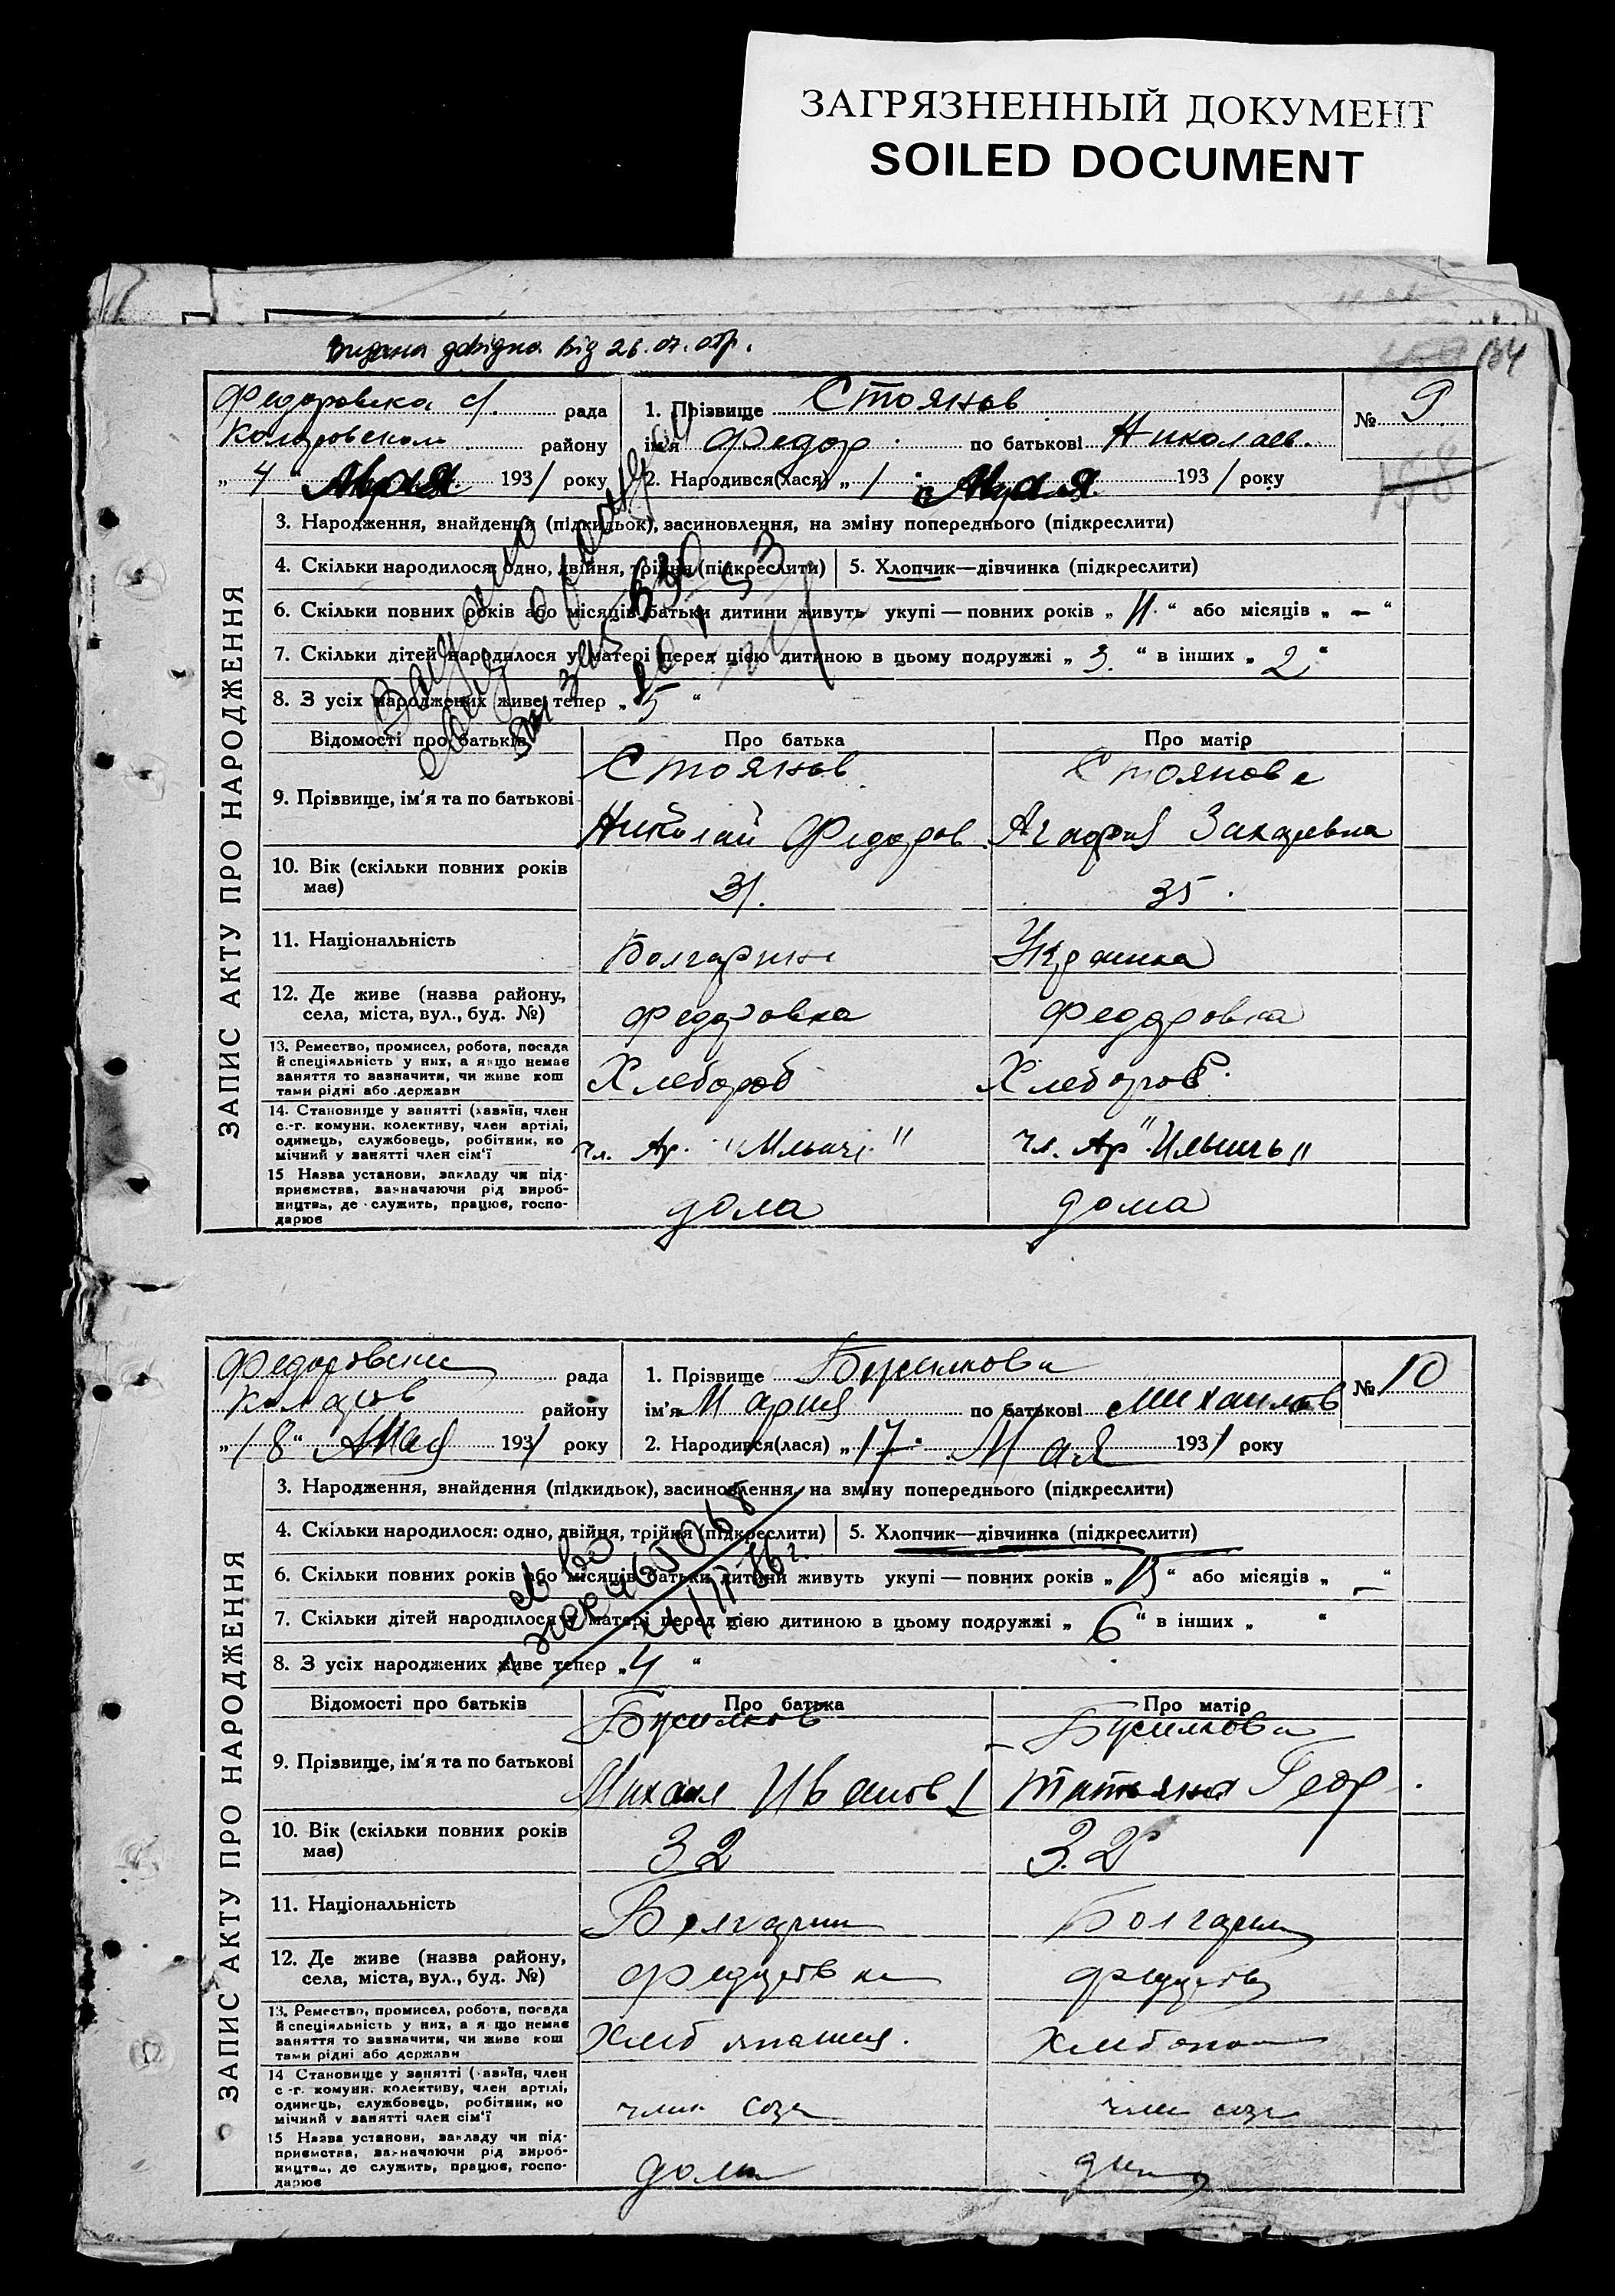 ЗАГРЯЗНЕННЫЙ ДОКУМЕНТ
SOILED DOCUMENT
Видана довідка від 26.07.
134
Федоровска с/. рада
1. Прізвище Стоянов
№ 9
району
ім'я Федор по батькові Николаев.
„ 4 " Мая 1931 року
2. Народився(лася) „ 1 " Мая 1931 року
168
ЗАПИС АКТУ ПРО НАРОДЖЕННЯ
3. Народження, знайдення (підкидьок), засиновлення, на зміну попереднього (підкреслити)
4. Скільки народилося: одно, двійня, трійня (підкреслити)
5. Хлопчик—дівчинка (підкреслити)
6. Скільки повних років або місяців батьки дитини живуть укупі — повних років „ 11. " або місяців „ — "
7. Скільки дітей народилося у матері перед цією дитиною в цьому подружжі „ 3. " в інших „ 2 "
8. З усіх народжених живе тепер „ 5 "
Відомості про батьків
Про батька
Про матір
9. Прізвище, ім'я та по батькові
Стоянов
Николай Федоров
Стоянова
Агафия Захаревна
10. Вік (скільки повних років
має)
31.
35.
11. Національність
Болгарин
Украинка
12. Де живе (назва району,
села, міста, вул., буд. №)
Федоровка
Федоровка
13. Ремество, промисел, робота, посада
й спеціяльність у них, а якщо немає
заняття то зазначити, чи живе кош
тами рідні або держави
Хлебороб
Хлебороб.
14. Становище у занятті (хазяїн, член
с.-г. комуни, колективу, член артілі,
одинець, службовець, робітник, по
мічний у занятті член сім'ї
чл. Ар. "Ильич"
чл. Ар "Ильичь"
15 Назва установи, закладу чи під-
приємства, зазначаючи рід вироб-
ництва, де служить, працює, госпо-
дарює
дома
дома
рада
1. Прізвище Бусилкова
№ 10
району
ім'я Мария по батькові Михаилов
„ 18 " Мая 1931 року
2. Народився(лася) „ 17 " Мая 1931 року
ЗАПИС АКТУ ПРО НАРОДЖЕННЯ
3. Народження, знайдення (підкидьок), засиновлення, на зміну попереднього (підкреслити)
4. Скільки народилося: одно, двійня, трійня (підкреслити)
5. Хлопчик—дівчинка (підкреслити)
6. Скільки повних років або місяців батьки дитини живуть укупі — повних років „ 13 " або місяців „ — "
7. Скільки дітей народилося у матері перед цією дитиною в цьому подружжі „ 6 " в інших „ "
8. З усіх народжених живе тепер „ 4 "
Відомості про батьків
Про батька
Про матір
9. Прізвище, ім'я та по батькові
Бусилков
Михаил Иванов
Бусилкова
Татьяна Геор
10. Вік (скільки повних років
має)
32
32
11. Національність
Болгарин
Болгарин
12. Де живе (назва району,
села, міста, вул., буд. №)
Федоровка
13. Ремество, промисел, робота, посада
й спеціяльність у них, а якщо немає
заняття то зазначити, чи живе кош
тами рідні або держави
14 Становище у занятті (хазяїн, член
с-г. комуни, колективу, член артілі,
одинець, службовець, робітник, по
мічний у занятті член сім'ї
член соза
член соза
15 Назва установи, закладу чи під-
приємства, зазначаючи рід вироб-
ництва, де служить, працює, госпо-
дарює
дома